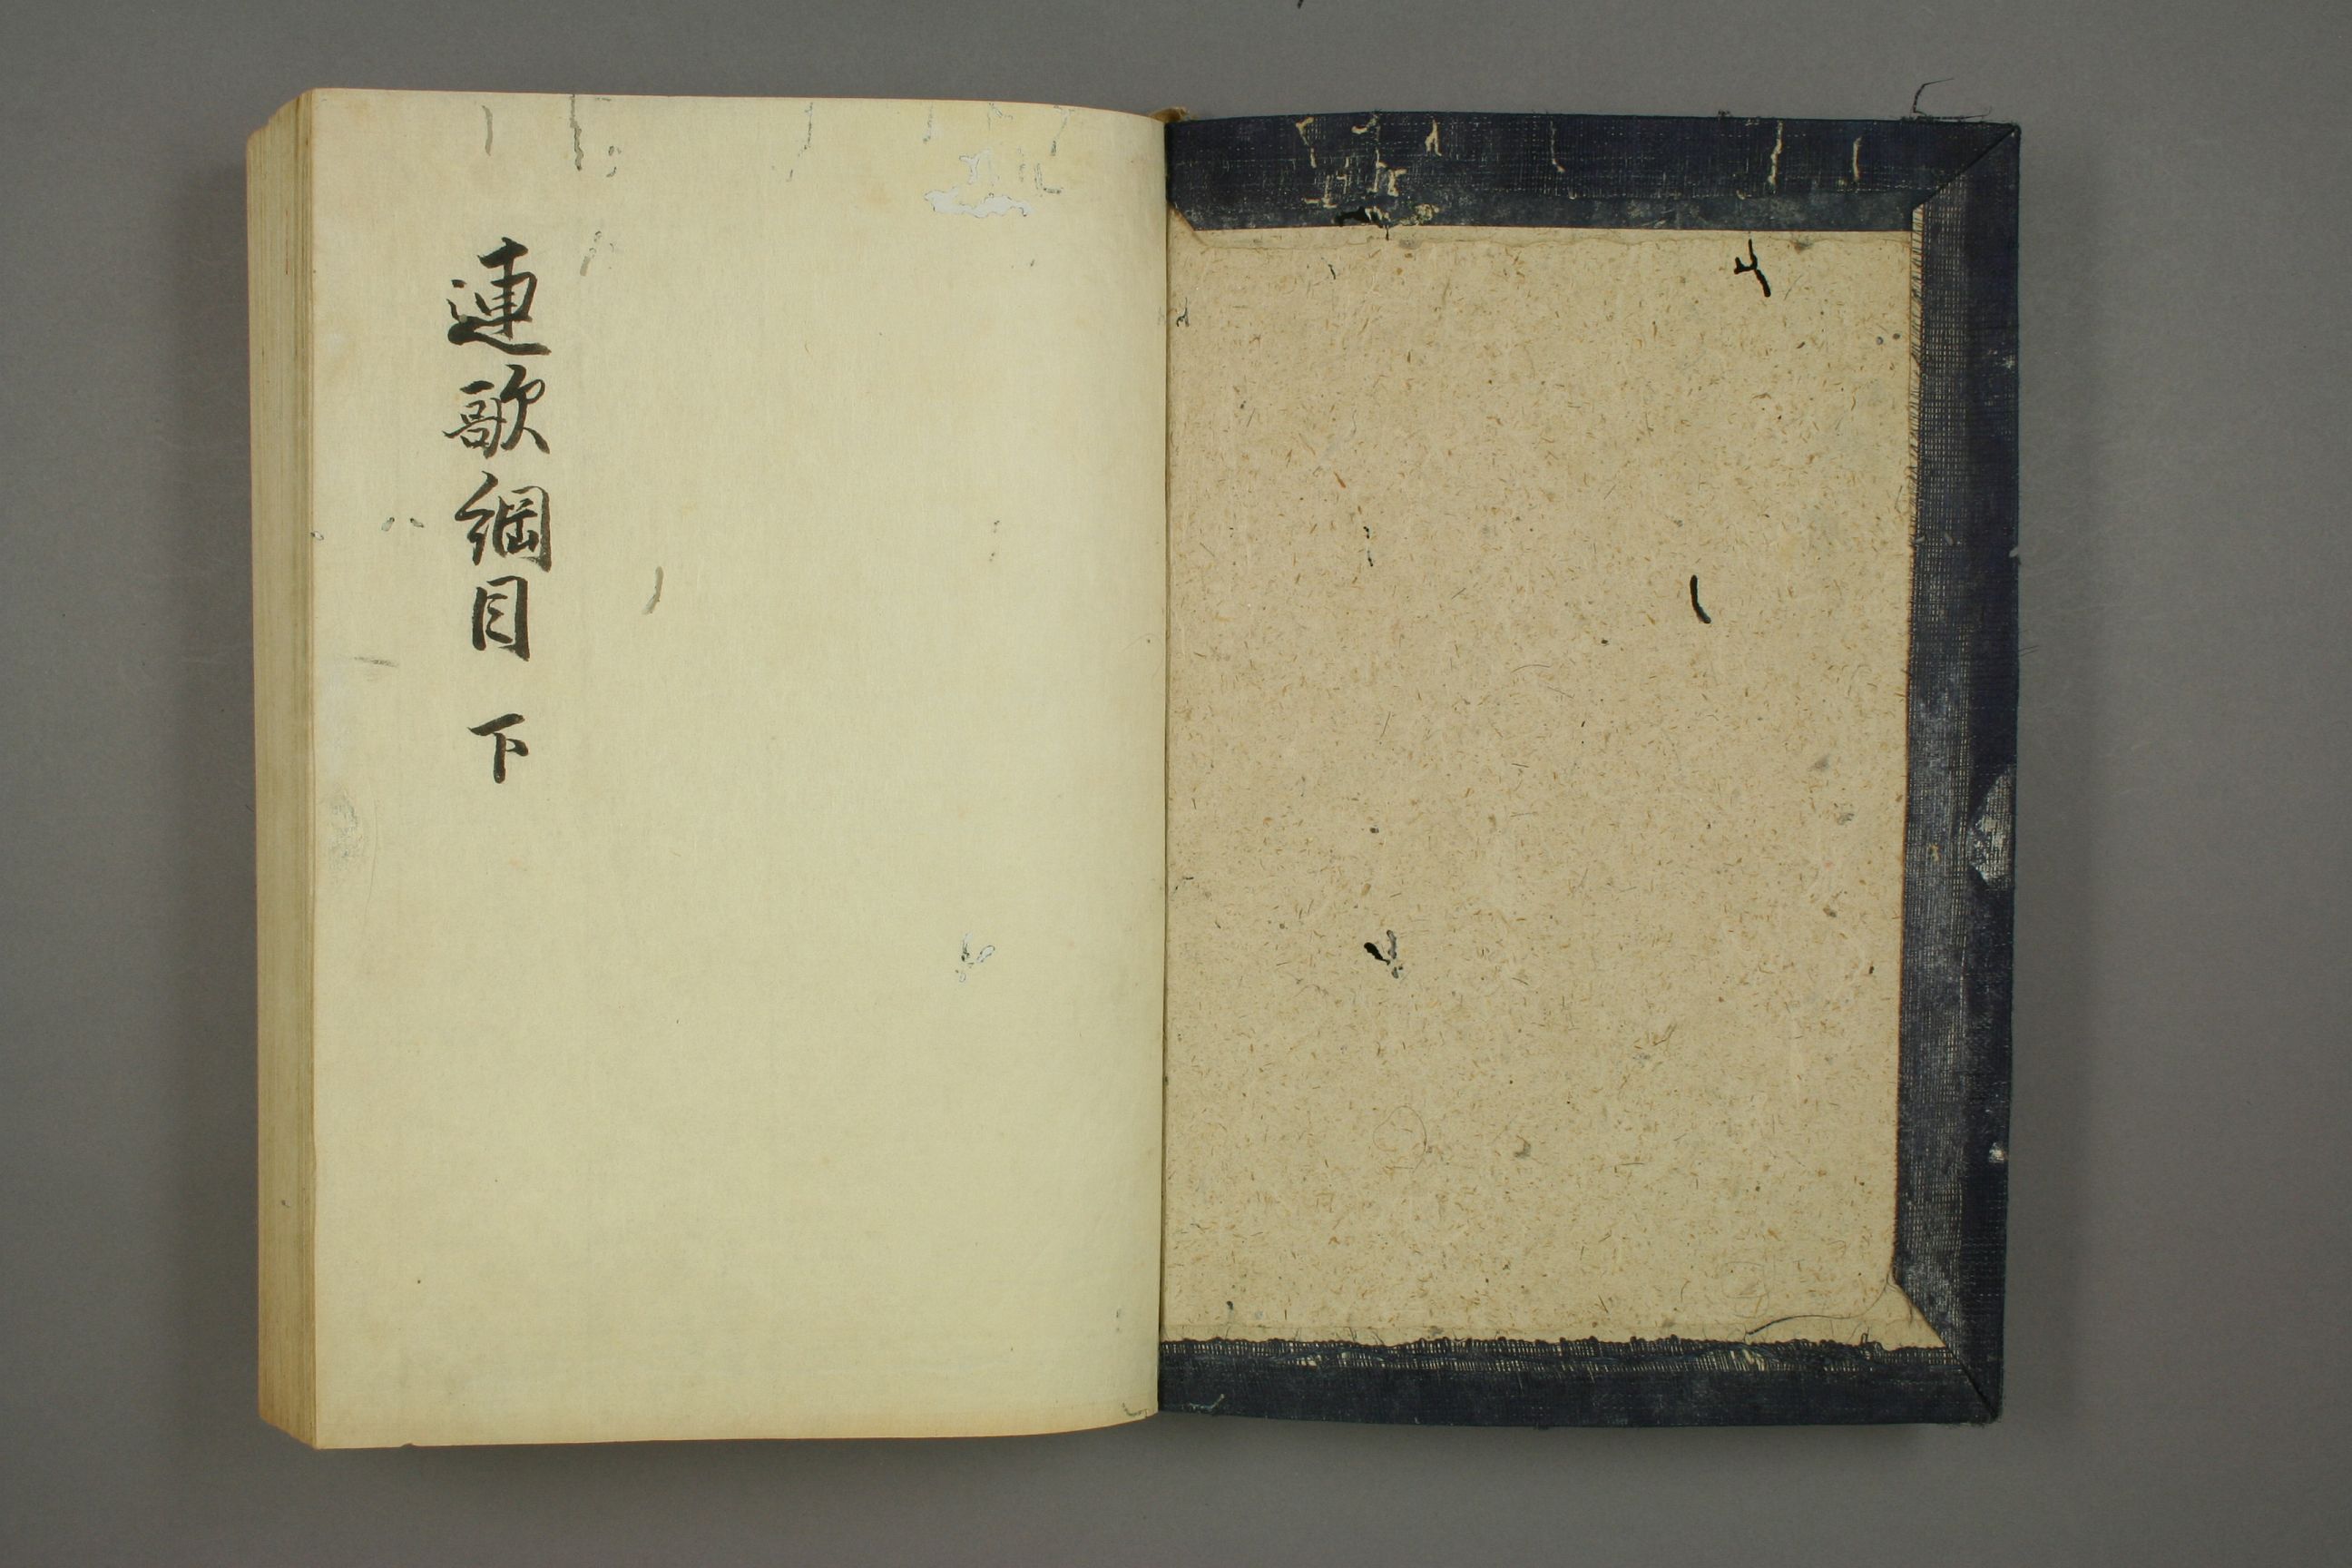 連歌綱目 下